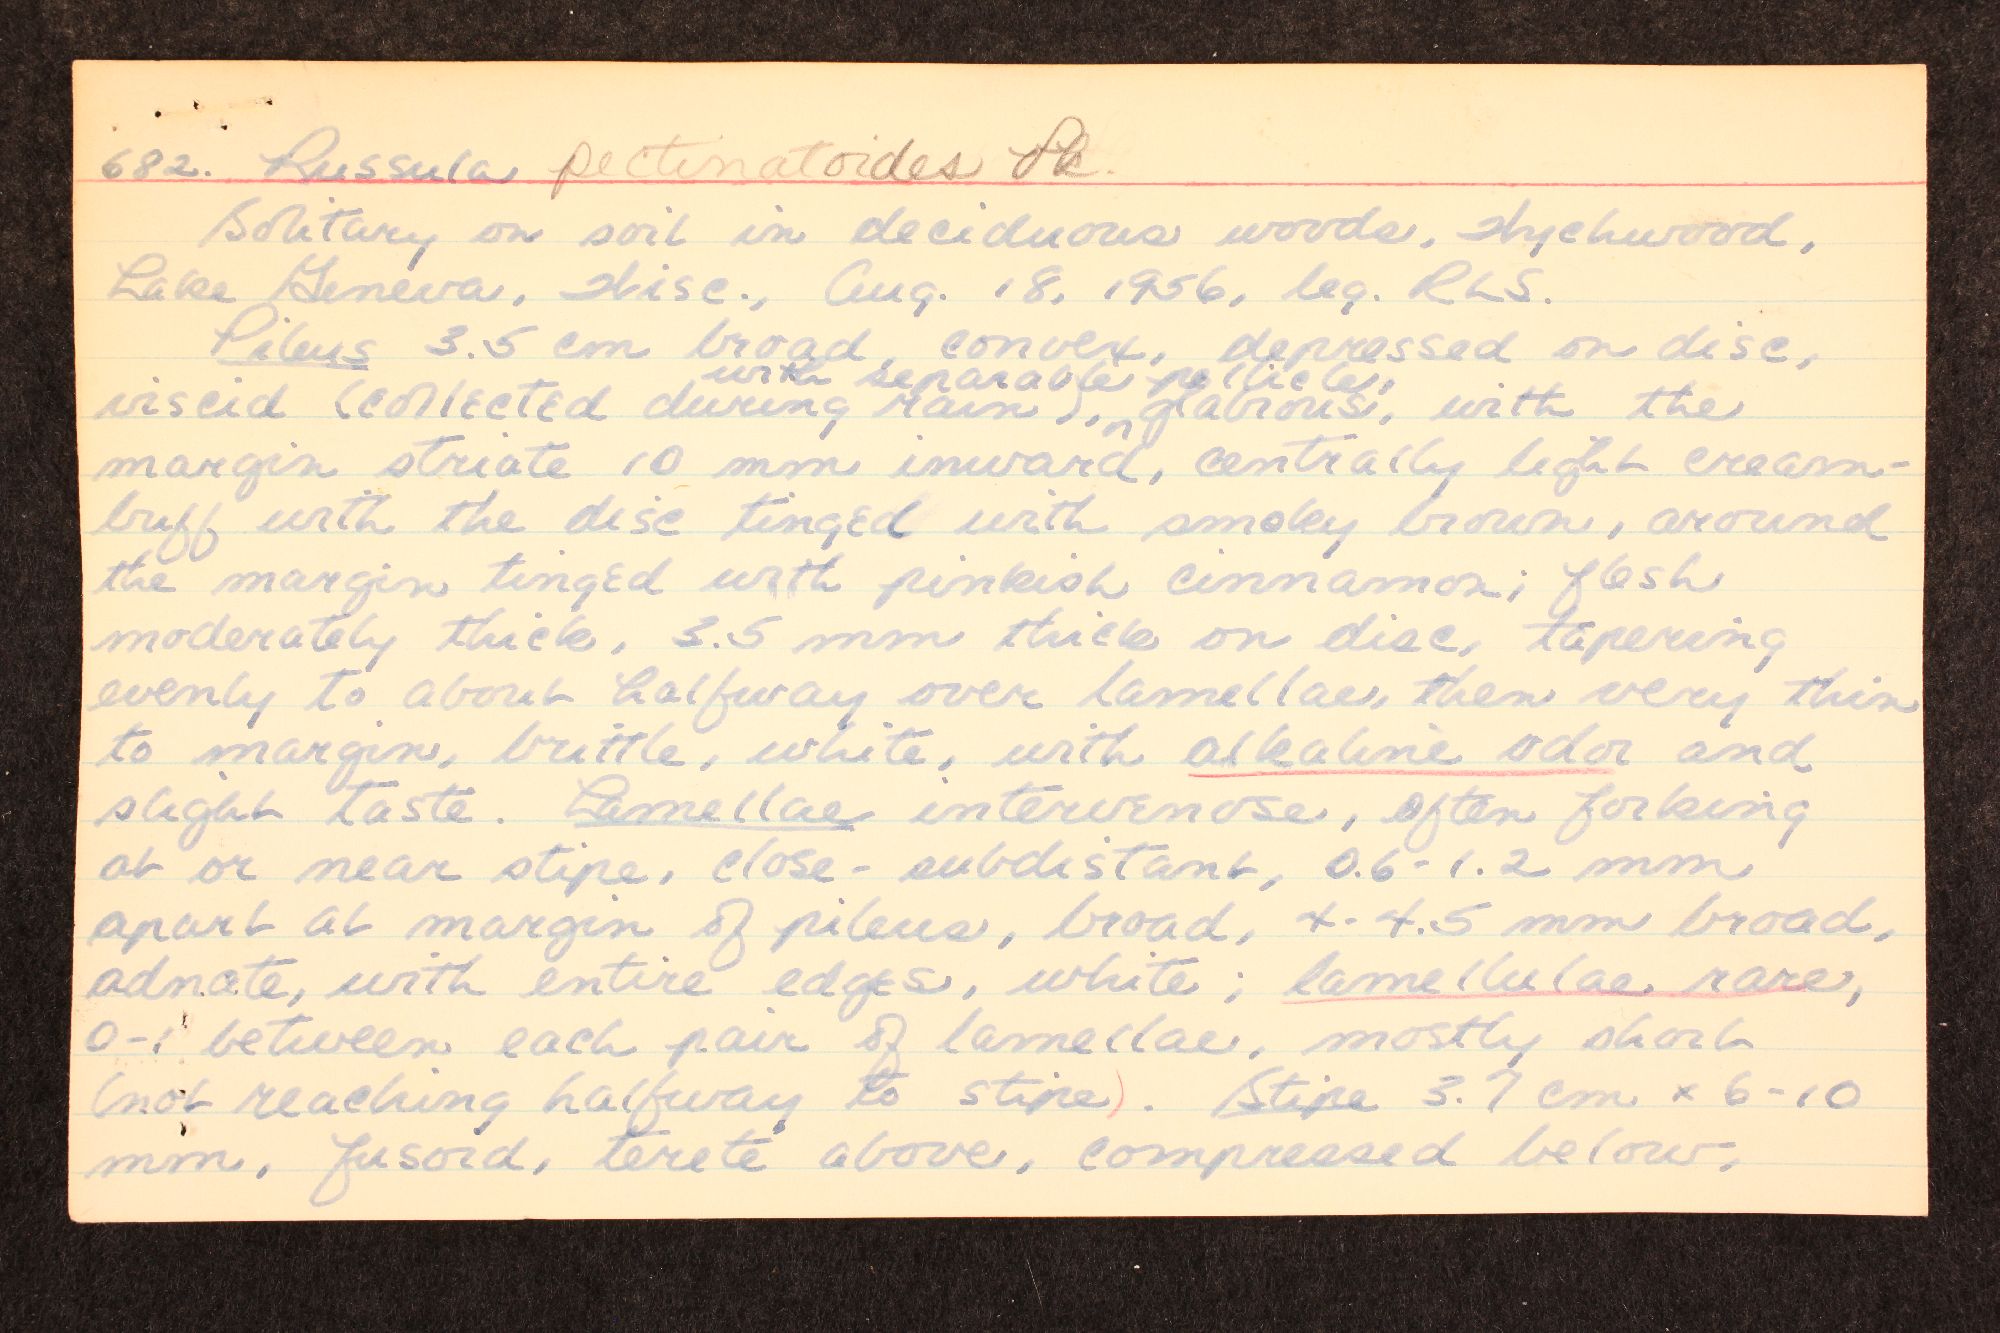 682. Russula pectinatoides Pk.
Solitary on soil in deciduous woods, Wychwood,
Lake Geneva, Wisc., Aug. 18, 1956, leg. RLS.
Pileus 3.5 cm broad, convex, depressed on disc,
with separable pellicle,
viscid (collected during rain), ^ glabrous, with the
margin striate 10 mm inward, centrally light cream-
buff with the disc tinged with smoky brown, around
the margin tinged with pinkish cinnamon; flesh
moderately thick, 3.5 mm thick on disc, tapering
evenly to about halfway over lamellae, then very thin
to margin, brittle, white, with alkaline odor and
slight taste. Lamellae intervenose, often forking
at or near stipe, close-subdistant, 0.6-1.2 mm
apart at margin of pileus, broad, 4-4.5 mm broad,
adnate, with entire edges, white; lamellulae rare,
0-1 between each pair of lamellae, mostly short
(not reaching halfway to stipe). Stipe 3.7 cm x 6-10
mm, fusoid, terete above, compressed below,